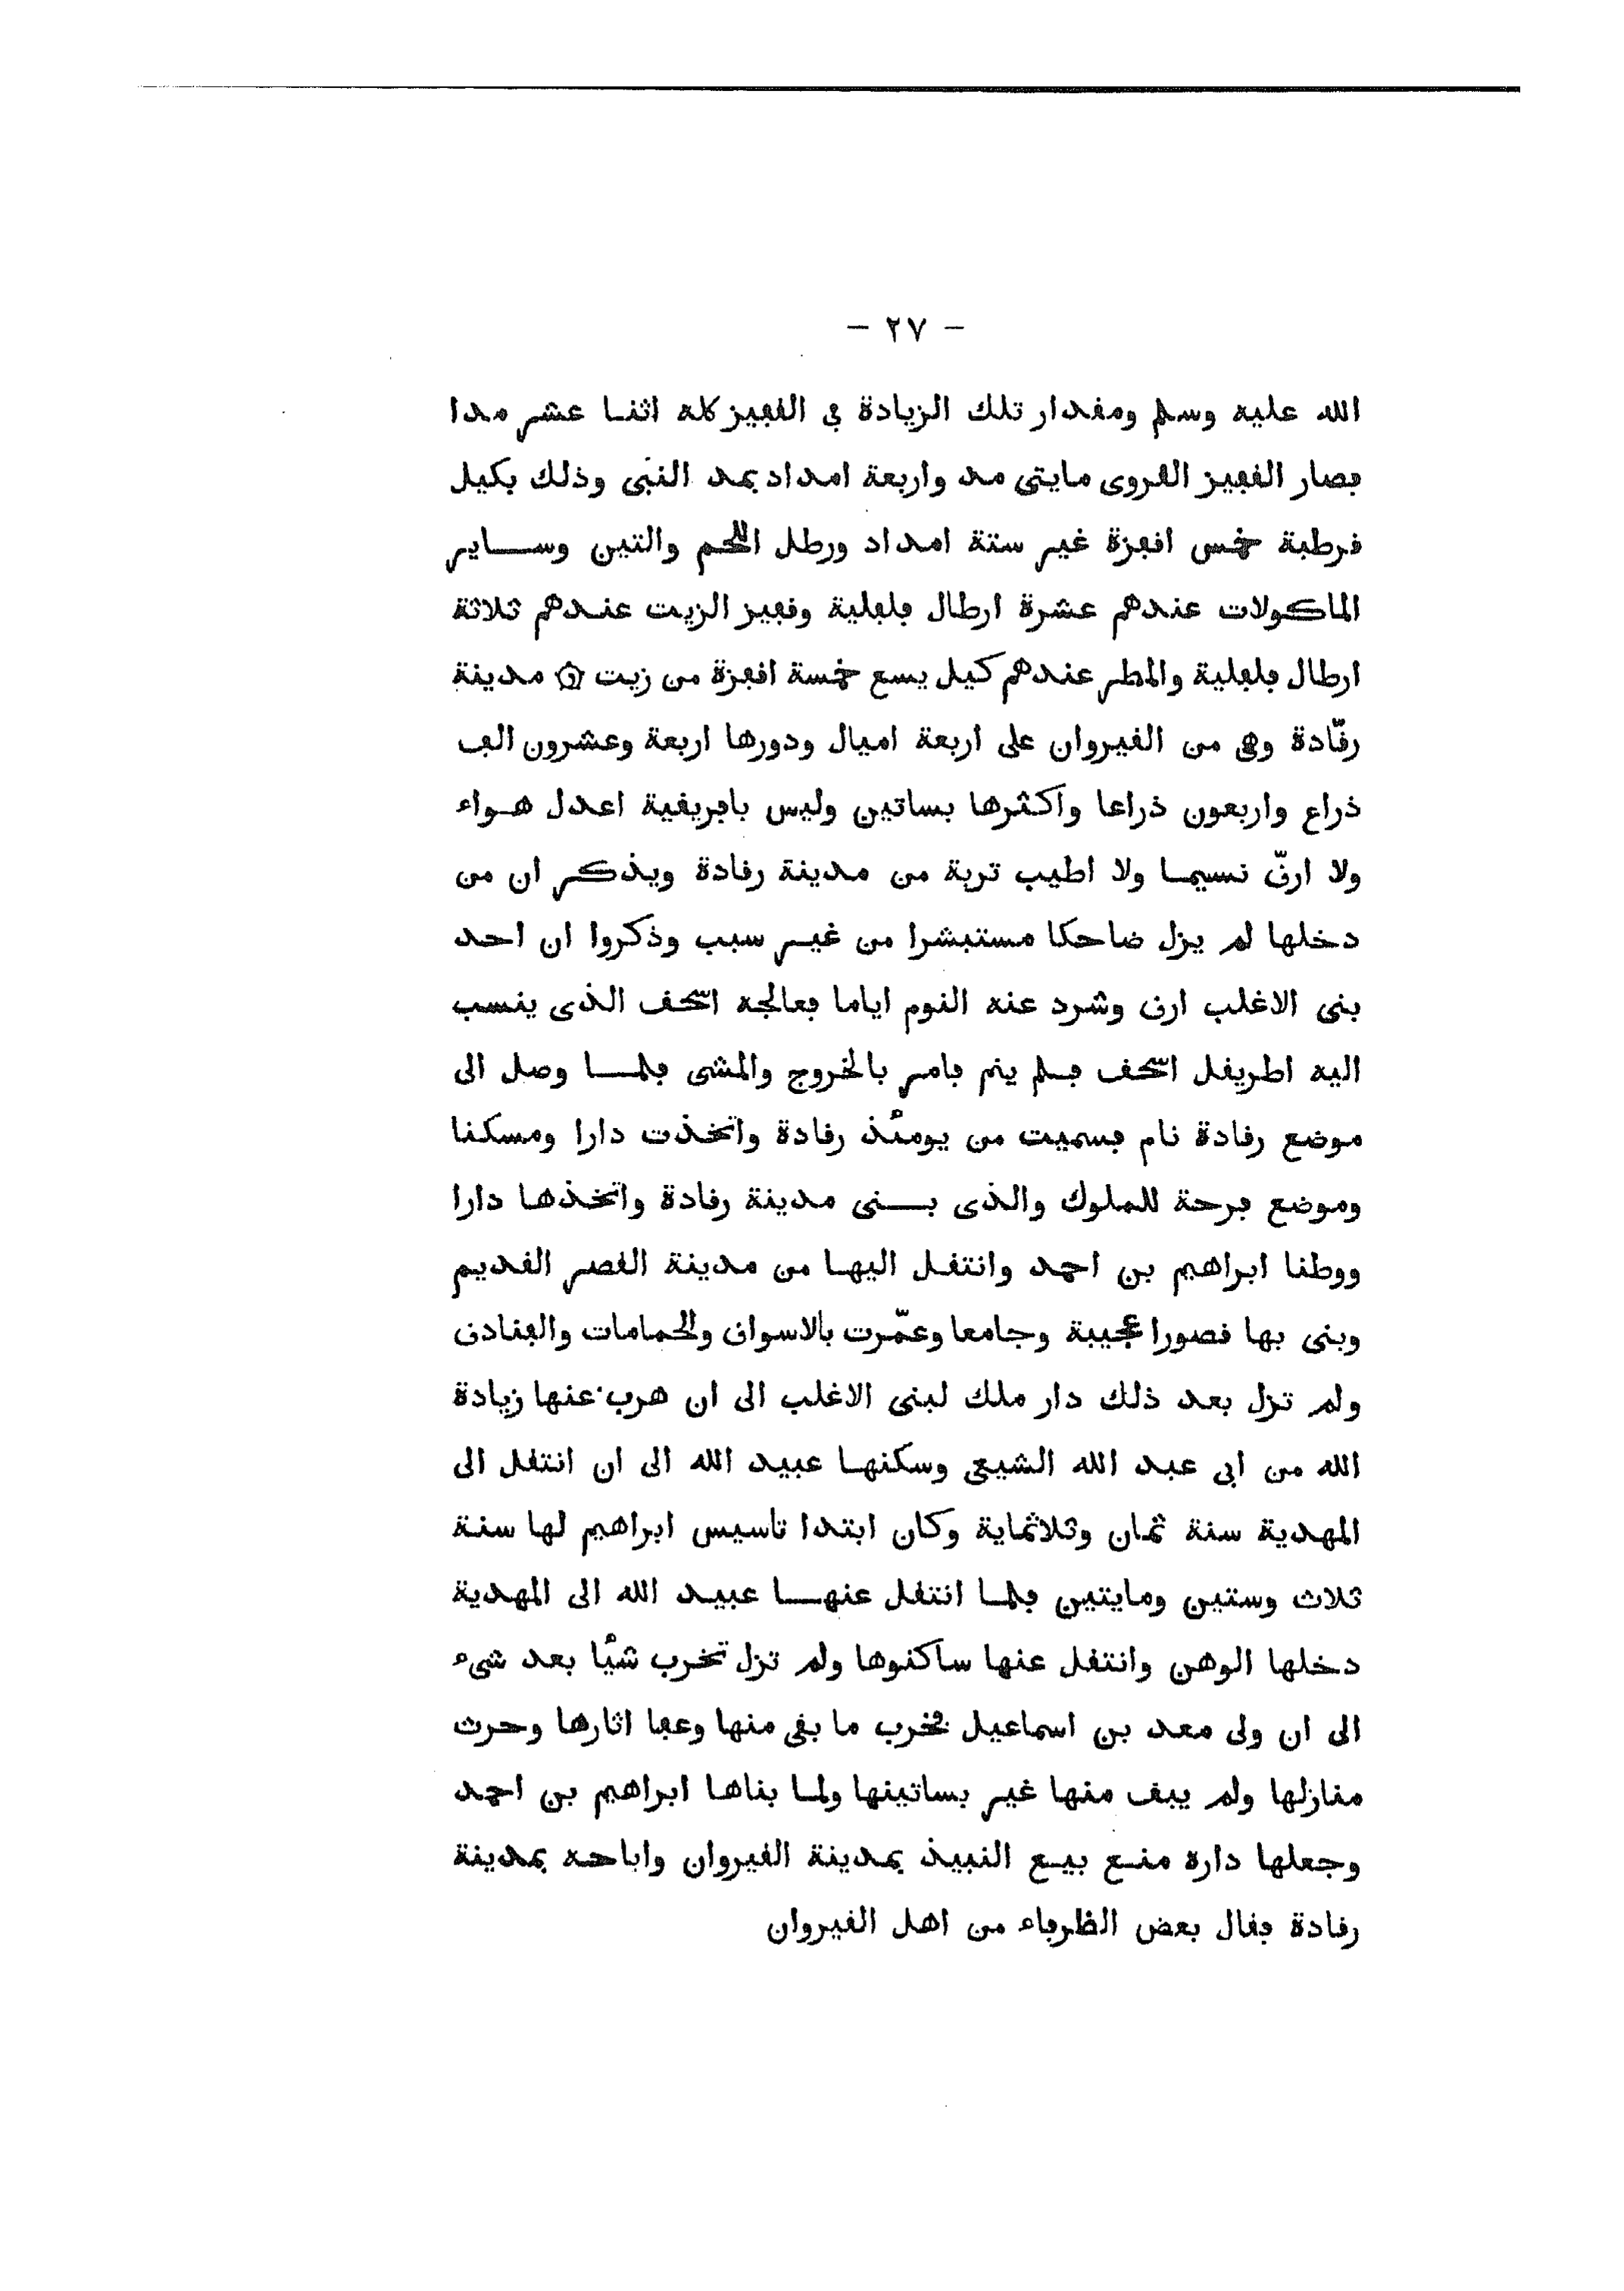 — ٢٧ —
الله عليه وسلم ومقدار تلك الزيادة في القفيز كله اثنا عشر مدا
فصار القفيز القروى مايتى مد واربعة امداد بمد النبى وذلك بكيل
قرطبة خمس اقفزة غير ستة امداد ورطل اللحم والتين وساير
الماكولات عندهم عشرة ارطال فلفلية وقفيز الزيت عندهم ثلاثة
ارطال فلفلية والمطر عندهم كيل يسع خمسة اقفزة من زيت ۞ مدينة
رقّادة وهى من القيروان على اربعة اميال ودورها اربعة وعشرون الف
ذراع واربعون ذراعا واكثرها بساتين وليس بافريقية اعدل هواء
ولا ارقّ نسيما ولا اطيب تربة من مدينة رقادة ويذكر ان من
دخلها لم يزل ضاحكا مستبشرا من غير سبب وذكروا ان احد
بنى الاغلب ارق وشرد عنه النوم اياما فعالجه اسحق الذى ينسب
اليه اطريفل اسحق فلم ينم فامر بالخروج والمشى فلما وصل الى
موضع رقادة نام فسميت من يومئذ رقادة واتخذت دارا ومسكنا
وموضع فرحة للملوك والذى بنى مدينة رقادة واتخذها دارا
ووطنا ابراهيم بن احمد وانتقل اليها من مدينة القصر القديم
وبنى بها قصورا عجيبة وجامعا وعمّرت بالاسواق والحمامات والفنادق
ولم تزل بعد ذلك دار ملك لبنى الاغلب الى ان هرب عنها زيادة
الله من ابى عبد الله الشيعى وسكنها عبيد الله الى ان انتقل الى
المهدية سنة ثمان وثلاثماية وكان ابتدا تاسيس ابراهيم لها سنة
ثلاث وستين ومايتين فلما انتقل عنها عبيد الله الى المهدية
دخلها الوهن وانتقل عنها ساكنوها ولم تزل تخرب شئًا بعد شىء
الى ان ولى معد بن اسماعيل فخرب ما بقى منها وعفا اثارها وحرث
منازلها ولم يبق منها غير بساتينها ولما بناها ابراهيم بن احمد
وجعلها داره منع بيع النبيذ بمدينة القيروان واباحه بمدينة
رقادة فقال بعض الظرفاء من اهل القيروان